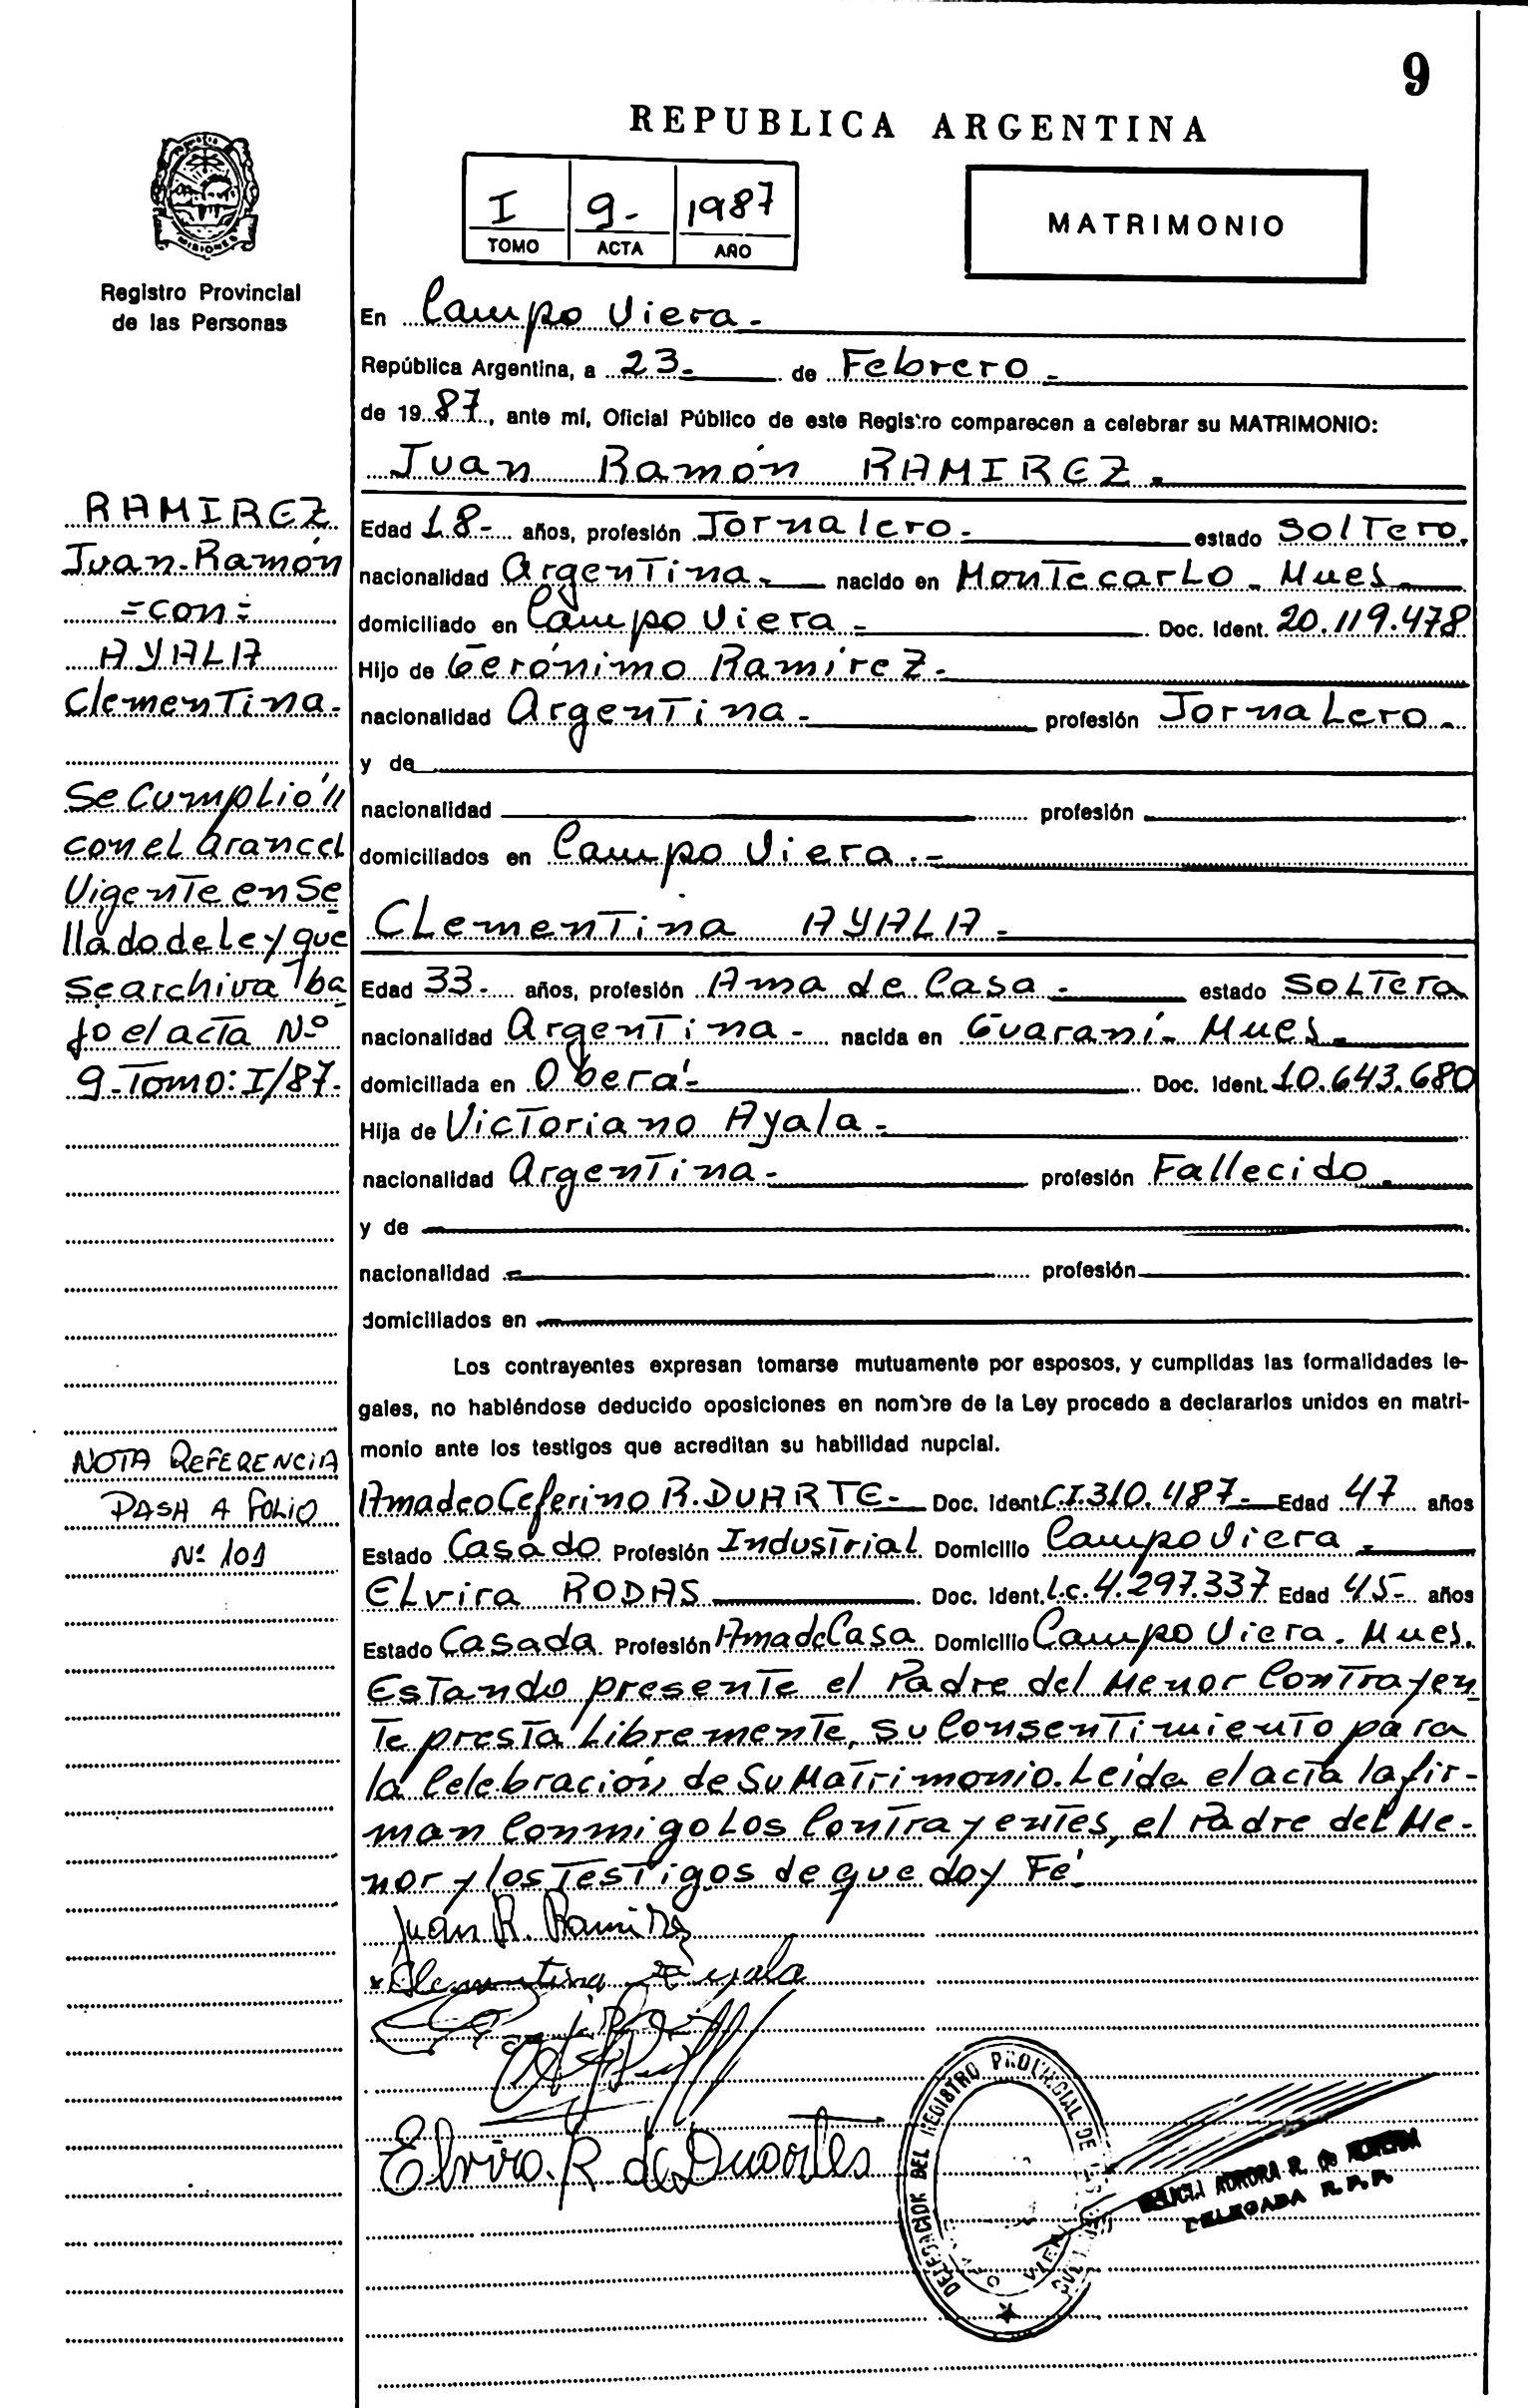 9
REPUBLICA ARGENTINA
I 9- 1987
TOMO ACTA AÑO
MATRIMONIO
MISIONES
Registro Provincial
de las Personas
En Campo Viera -
República Argentina, a 23- de Febrero -
de 1987, ante mí, Oficial Público de este Registro comparecen a celebrar su MATRIMONIO:
Juan Ramón RAMIREZ -
Edad 18- años, profesión Jornalero - estado Soltero.
nacionalidad Argentina - nacido en Montecarlo - Mnes -
domiciliado en Campo Viera - Doc. Ident. 20.119.478
Hijo de Gerónimo Ramírez -
nacionalidad Argentina - profesión Jornalero -
y de
nacionalidad profesión
domiciliados en Campo Viera . -
Clementina AYALA -
Edad 33- años, profesión Ama de Casa - estado Soltera
nacionalidad Argentina - nacida en Guaraní - Mnes -
domiciliada en Oberá - Doc. Ident. 10.643.680
Hija de Victoriano Ayala -
nacionalidad Argentina - profesión Fallecido -
y de
nacionalidad profesión
domiciliados en
Los contrayentes expresan tomarse mutuamente por esposos, y cumplidas las formalidades le-
gales, no habiéndose deducido oposiciones en nombre de la Ley procedo a declararlos unidos en matri-
monio ante los testigos que acreditan su habilidad nupcial.
Amadeo Ceferino R. DUARTE - Doc. Ident. C.I.310.487- Edad 47 años
Estado Casado Profesión Industrial Domicilio Campo Viera -
Elvira RODAS Doc. Ident. L.C. 4.297.337 Edad 45- años
Estado Casada Profesión Ama de Casa Domicilio Campo Viera - Mnes.
Estando presente el Padre del Menor Contrayen
te presta libremente, su Consentimiento para
la Celebración de Su Matrimonio. Leída el acta la fir-
man Conmigo los Contrayentes, el Padre del Me-
nor y los Testigos de que doy Fé.
Juan R. Ramirez
x Clementina Ayala
Elvira. R de Duartes
DELEGACION DEL REGISTRO PROVINCIAL DE
AURORA R. de
DELEGADA R.P.P.
RAMIREZ
Juan-Ramón
=con=
AYALA
Clementina-
Se Cumplió //
con el arancel
Vigente en Se
llado de Ley que
se archiva ba
jo el acta Nº
9-Tomo: I/87-
NOTA REFERENCIA
PASA A FOLIO
Nº 101